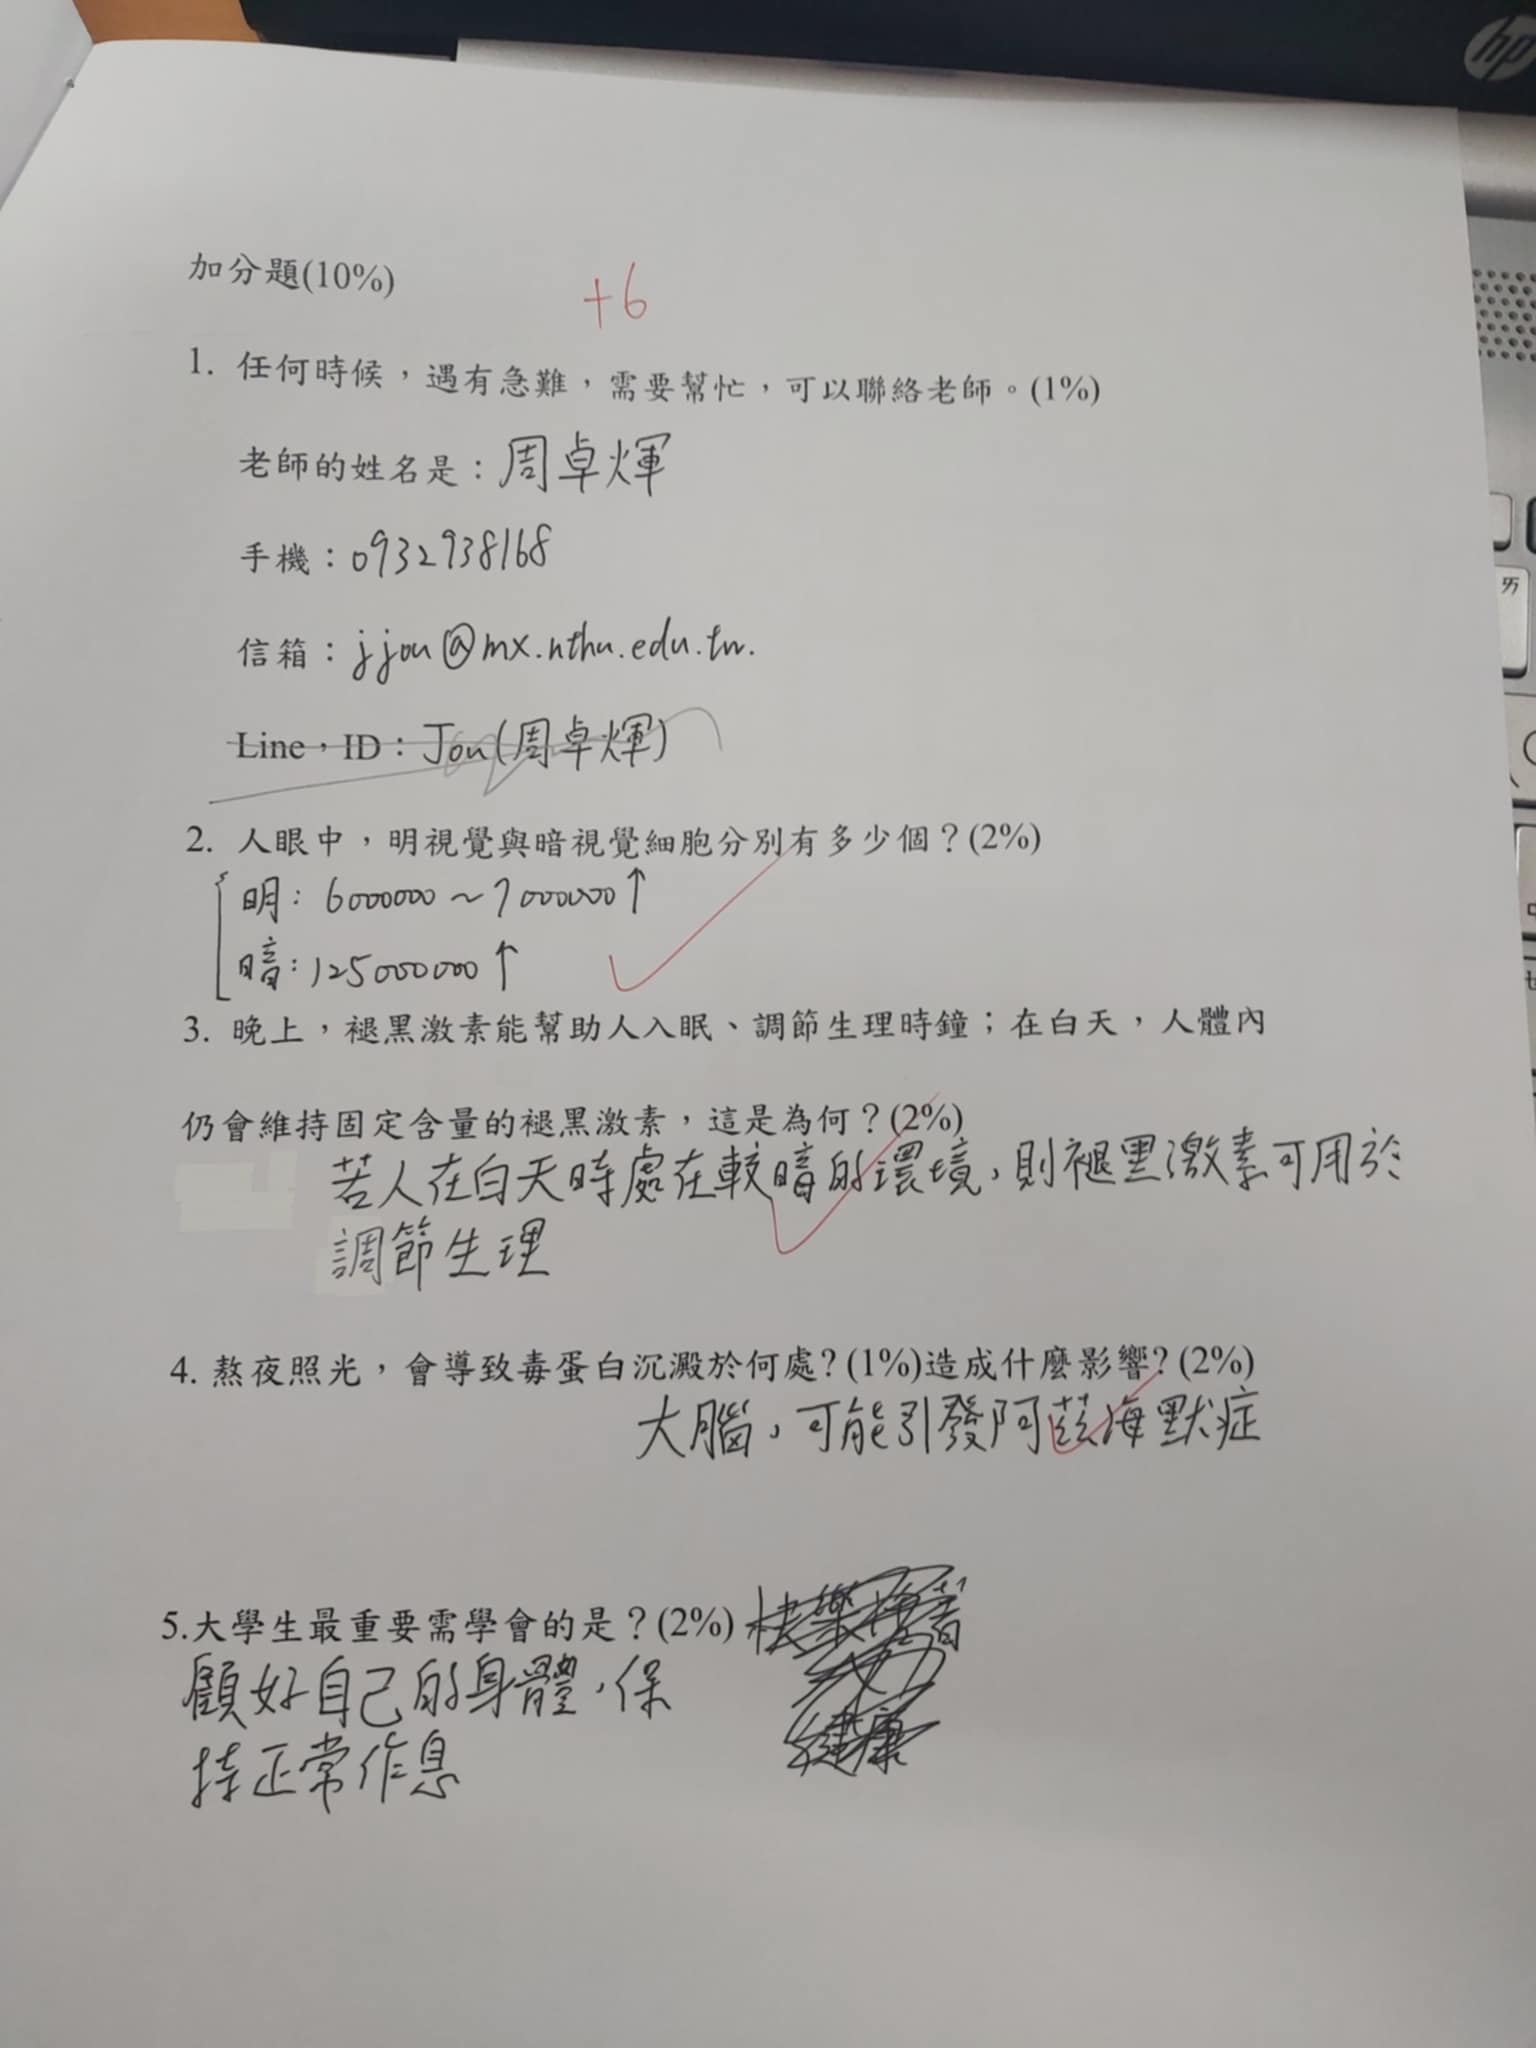 hp
加分題(10%)
+6
1. 任何時候，遇有急難，需要幫忙，可以聯絡老師。(1%)
老師的姓名是：周卓煇
手機：0932938168
信箱：jjou@mx.nthu.edu.tw.
Line，ID：Jou(周卓煇)
2. 人眼中，明視覺與暗視覺細胞分別有多少個？(2%)
明：6000000～7000000↑
暗：125000000↑
3. 晚上，褪黑激素能幫助人入眠、調節生理時鐘；在白天，人體內
仍會維持固定含量的褪黑激素，這是為何？(2%)
若人在白天時處在較暗的環境，則褪黑激素可用於
調節生理
4. 熬夜照光，會導致毒蛋白沉澱於何處？(1%)造成什麼影響？(2%)
大腦，可能引發阿茲海默症
5.大學生最重要需學會的是？(2%)
顧好自己的身體，保
持正常作息